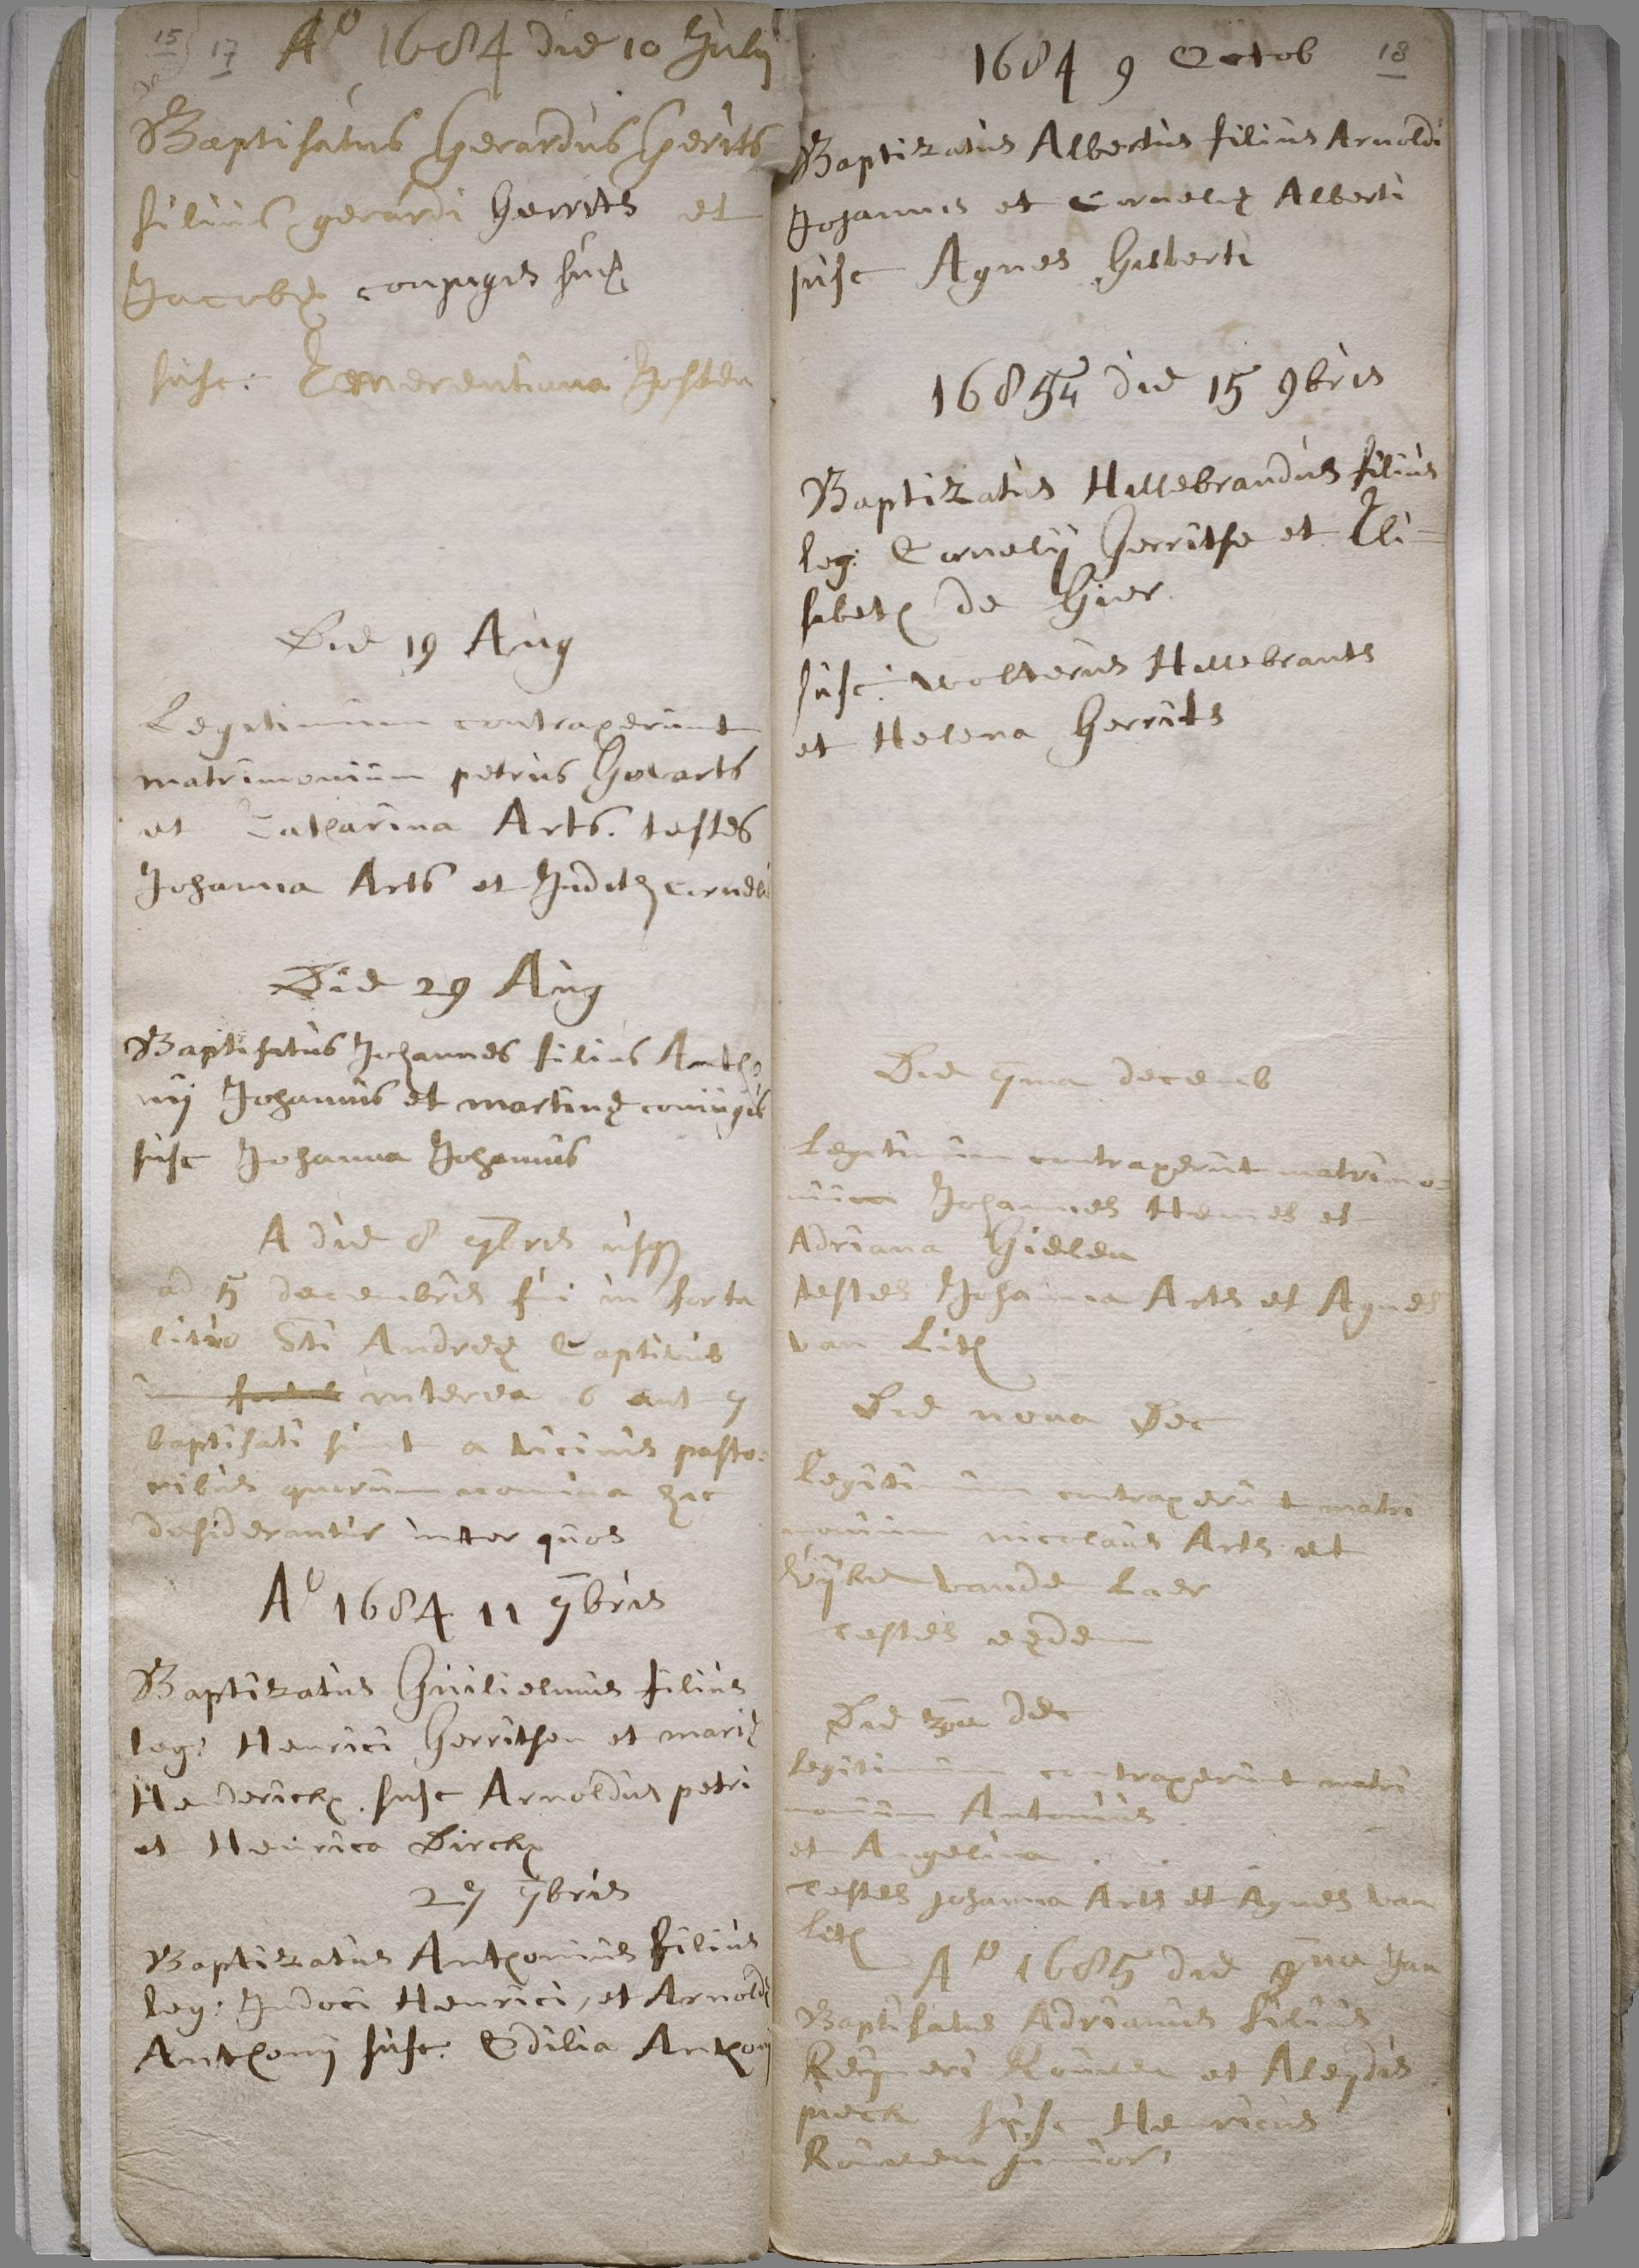 15 17
A⁰ 1684 die 10 Julij
Baptisatus Gerardus Gerits
filius gerardi Gerrits et
Jacobæ conjugis suæ
susc: Emerentiana Josten
Die 19 Aug
Legitimum contraxerunt
matrimonium petrus Govarts
et Catharina Arts. testes
Johanna Arts et Judith Corneli
Die 29 Aug
Baptisatus Johannes filius Antho
nij Johannis et martinæ coniugis
susc Johanna Johannis
A die 8 7bris usq
ad 5 decembris fui in forta
litio Sti Andreæ Captivus
interea 6 aut 7
baptisati sunt a vicinis pasto=
ribus quorum nomina hic
desiderantur inter quos
A⁰ 1684 11 7bris
Baptizatus Guilielmus filius
leg: Henrici Gerritsen et mariæ
Henderickx. susc Arnoldus petri
et Henrica Dirckx
27 7bris
Baptizatus Anthonius filius
leg: Judoci Henrici, et Arnoldæ
Anthonij susc: Odilia Anthonij
18
1684 9 Octob
Baptizatus Albertus filius Arnoldi
Johannis et Corneliæ Alberti
susc Agnes Gisberti
1684 die 15 9bris
Baptizatus Hillebrandus filius
leg: Cornelij Gerritse et Eli=
sabeth de Gier
susc: wolterus Hillebrants
et Helena Gerrits
Die 7ma decemb
Legitimum contraxerunt matrimo=
nium Johannes Hemes et
Adriana Gielen
testes Johanna Arts et Agnes
van Lith
Die nona Dec
Legitimum contraxerunt matri
monium nicolaus Arts et
vande Laer
testes eædem
Die dec
legitimum contraxerunt matri
monium Antonius
et Angelina . . .
testes Johanna Arts et Agnes van
Lith
A⁰ 1685 die Jan
Baptisatus Adrianus filius
Reijneri Romen et Aleydis
pieck susc Henricus
Romen junior